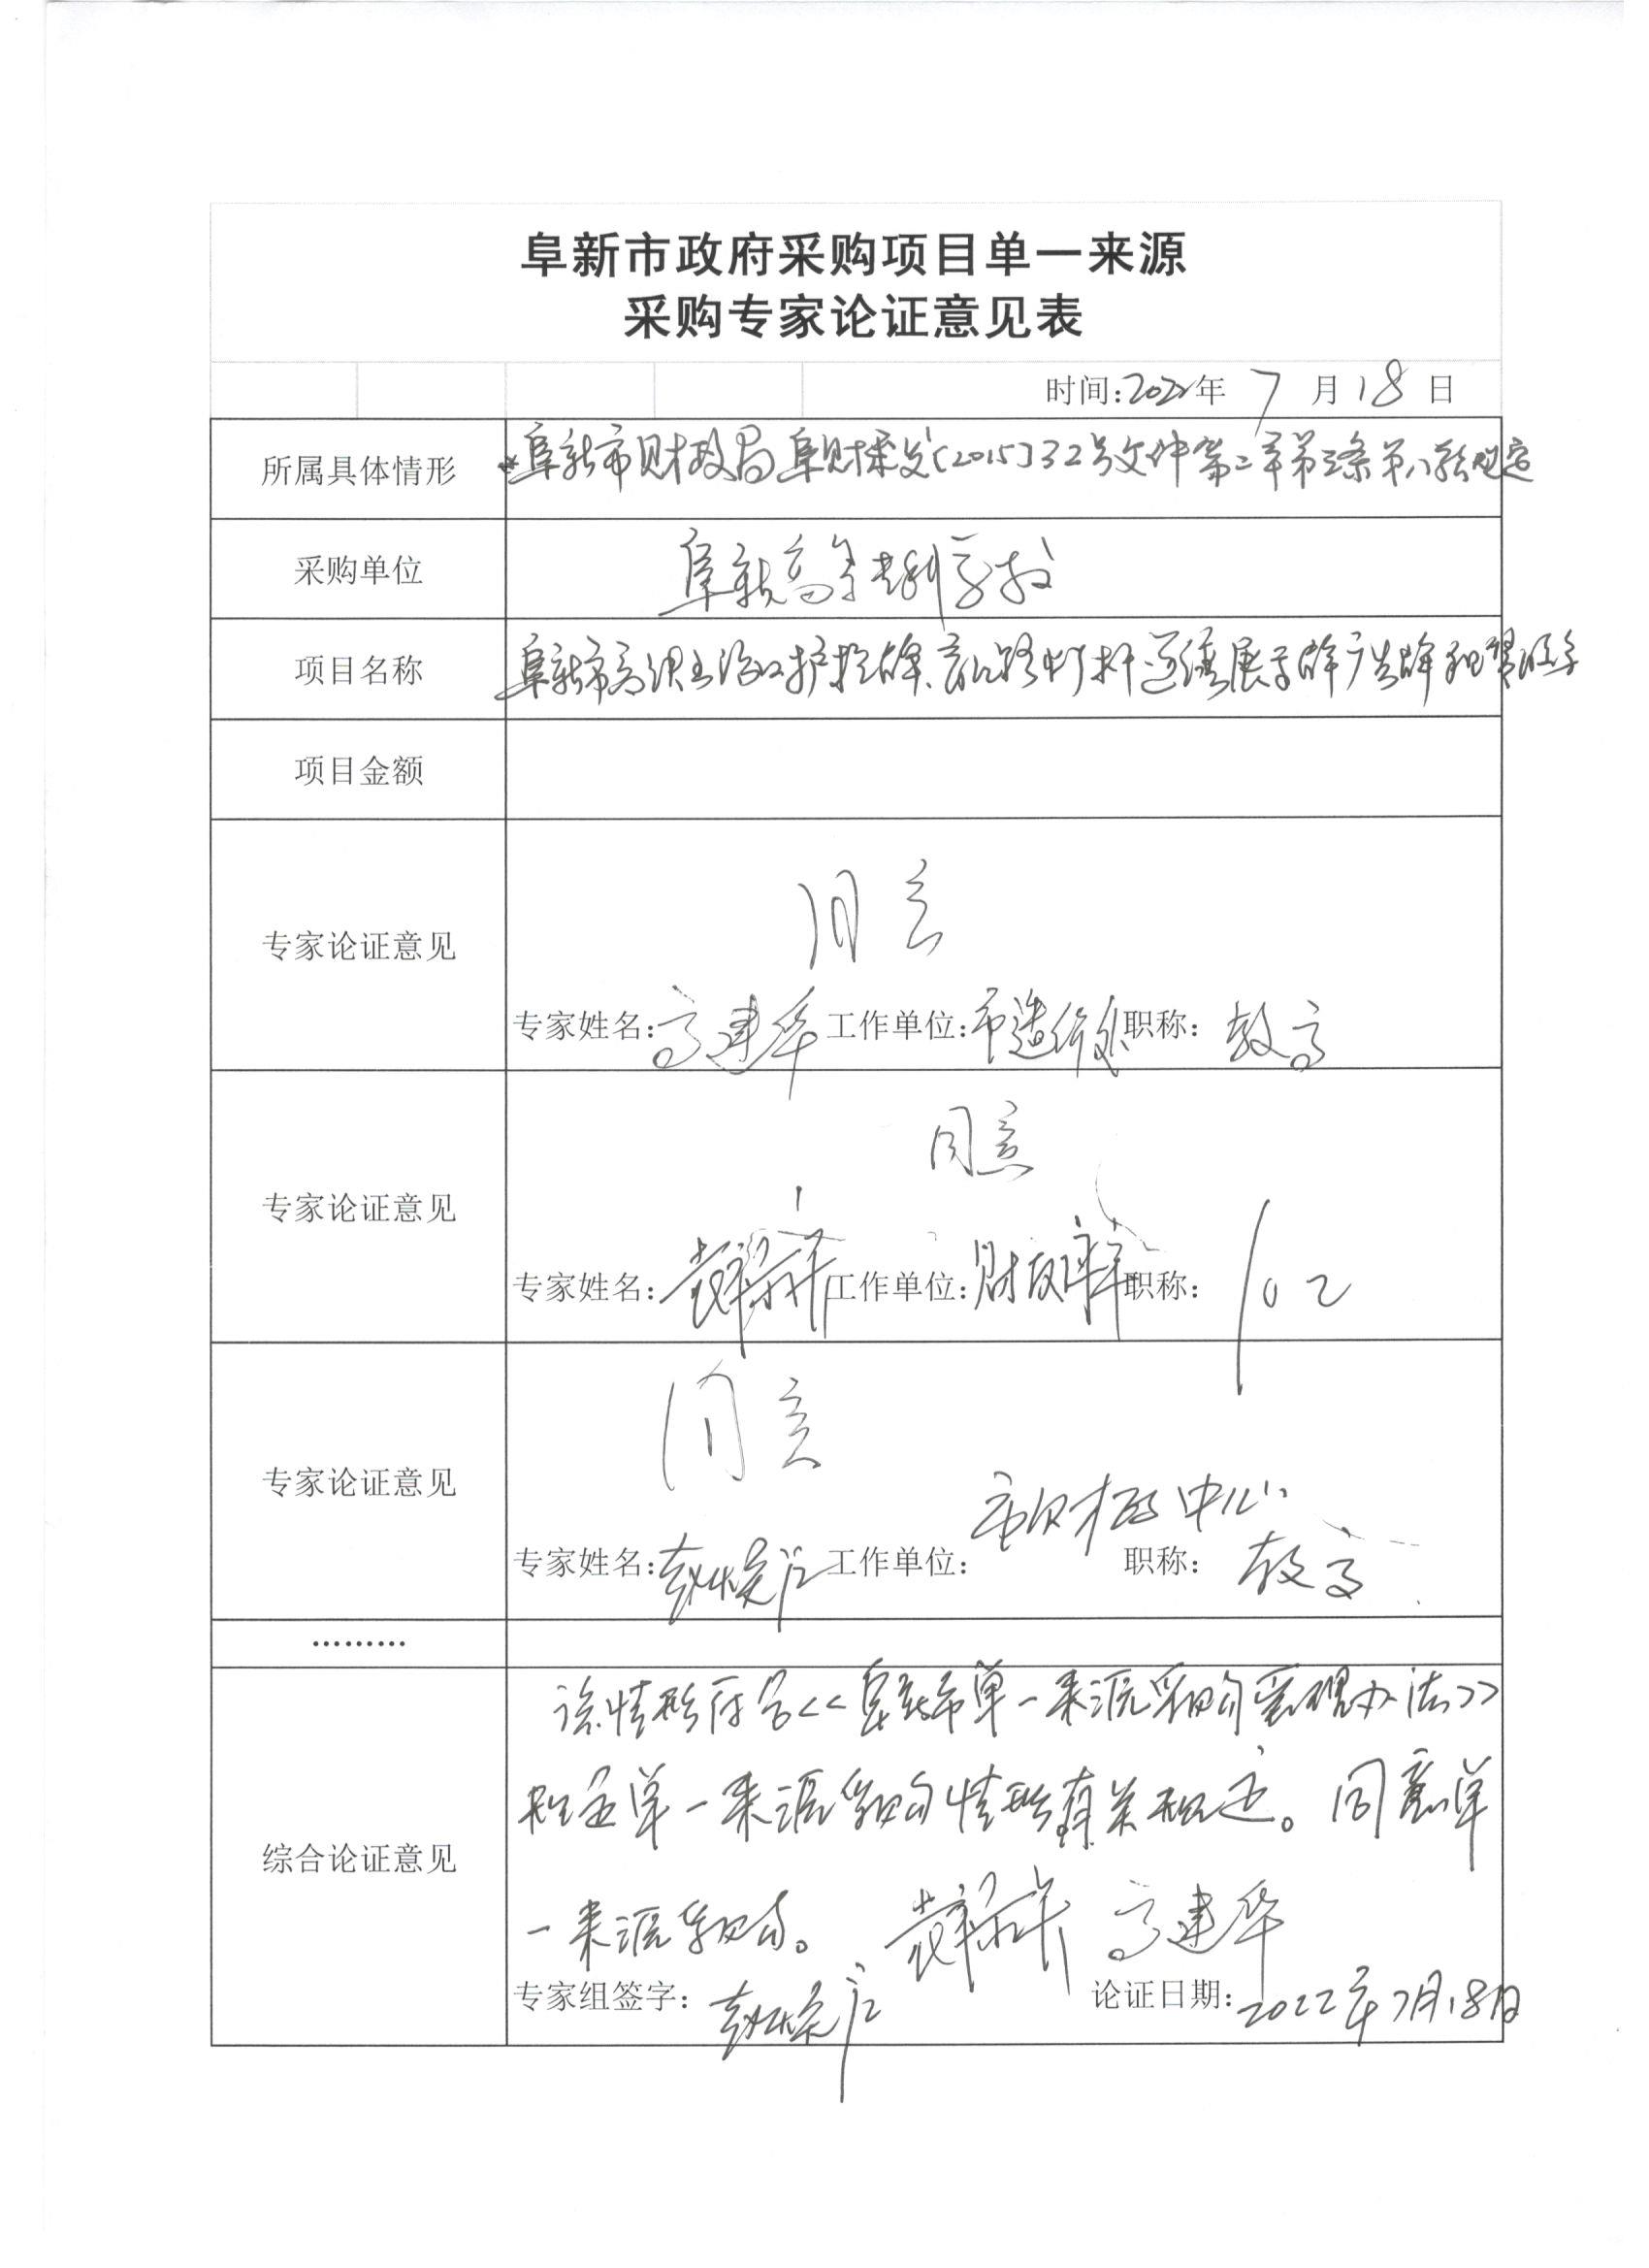 阜新市政府采购项目单一来源
采购专家论证意见表
时间:2022年 7 月 18 日
所属具体情形 阜新市财政局 阜财采发〔2015〕32号文件第二章第三条第八款规定
采购单位 阜新高等专科学校
项目名称 阜新市
项目金额
同意
专家论证意见
专家姓名:高建华 工作单位:市造价处 职称: 教高
同意
专家论证意见
专家姓名: 工作单位:财政 职称:
同意
专家论证意见
市财政中心
专家姓名: 工作单位: 职称: 教高
………
该情形符合<<阜新市单一来源采购管理办法>>
规定单一来源采购情形有关规定。同意单
综合论证意见
一来源采购。 高建华
专家组签字: 论证日期:2022年7月18日